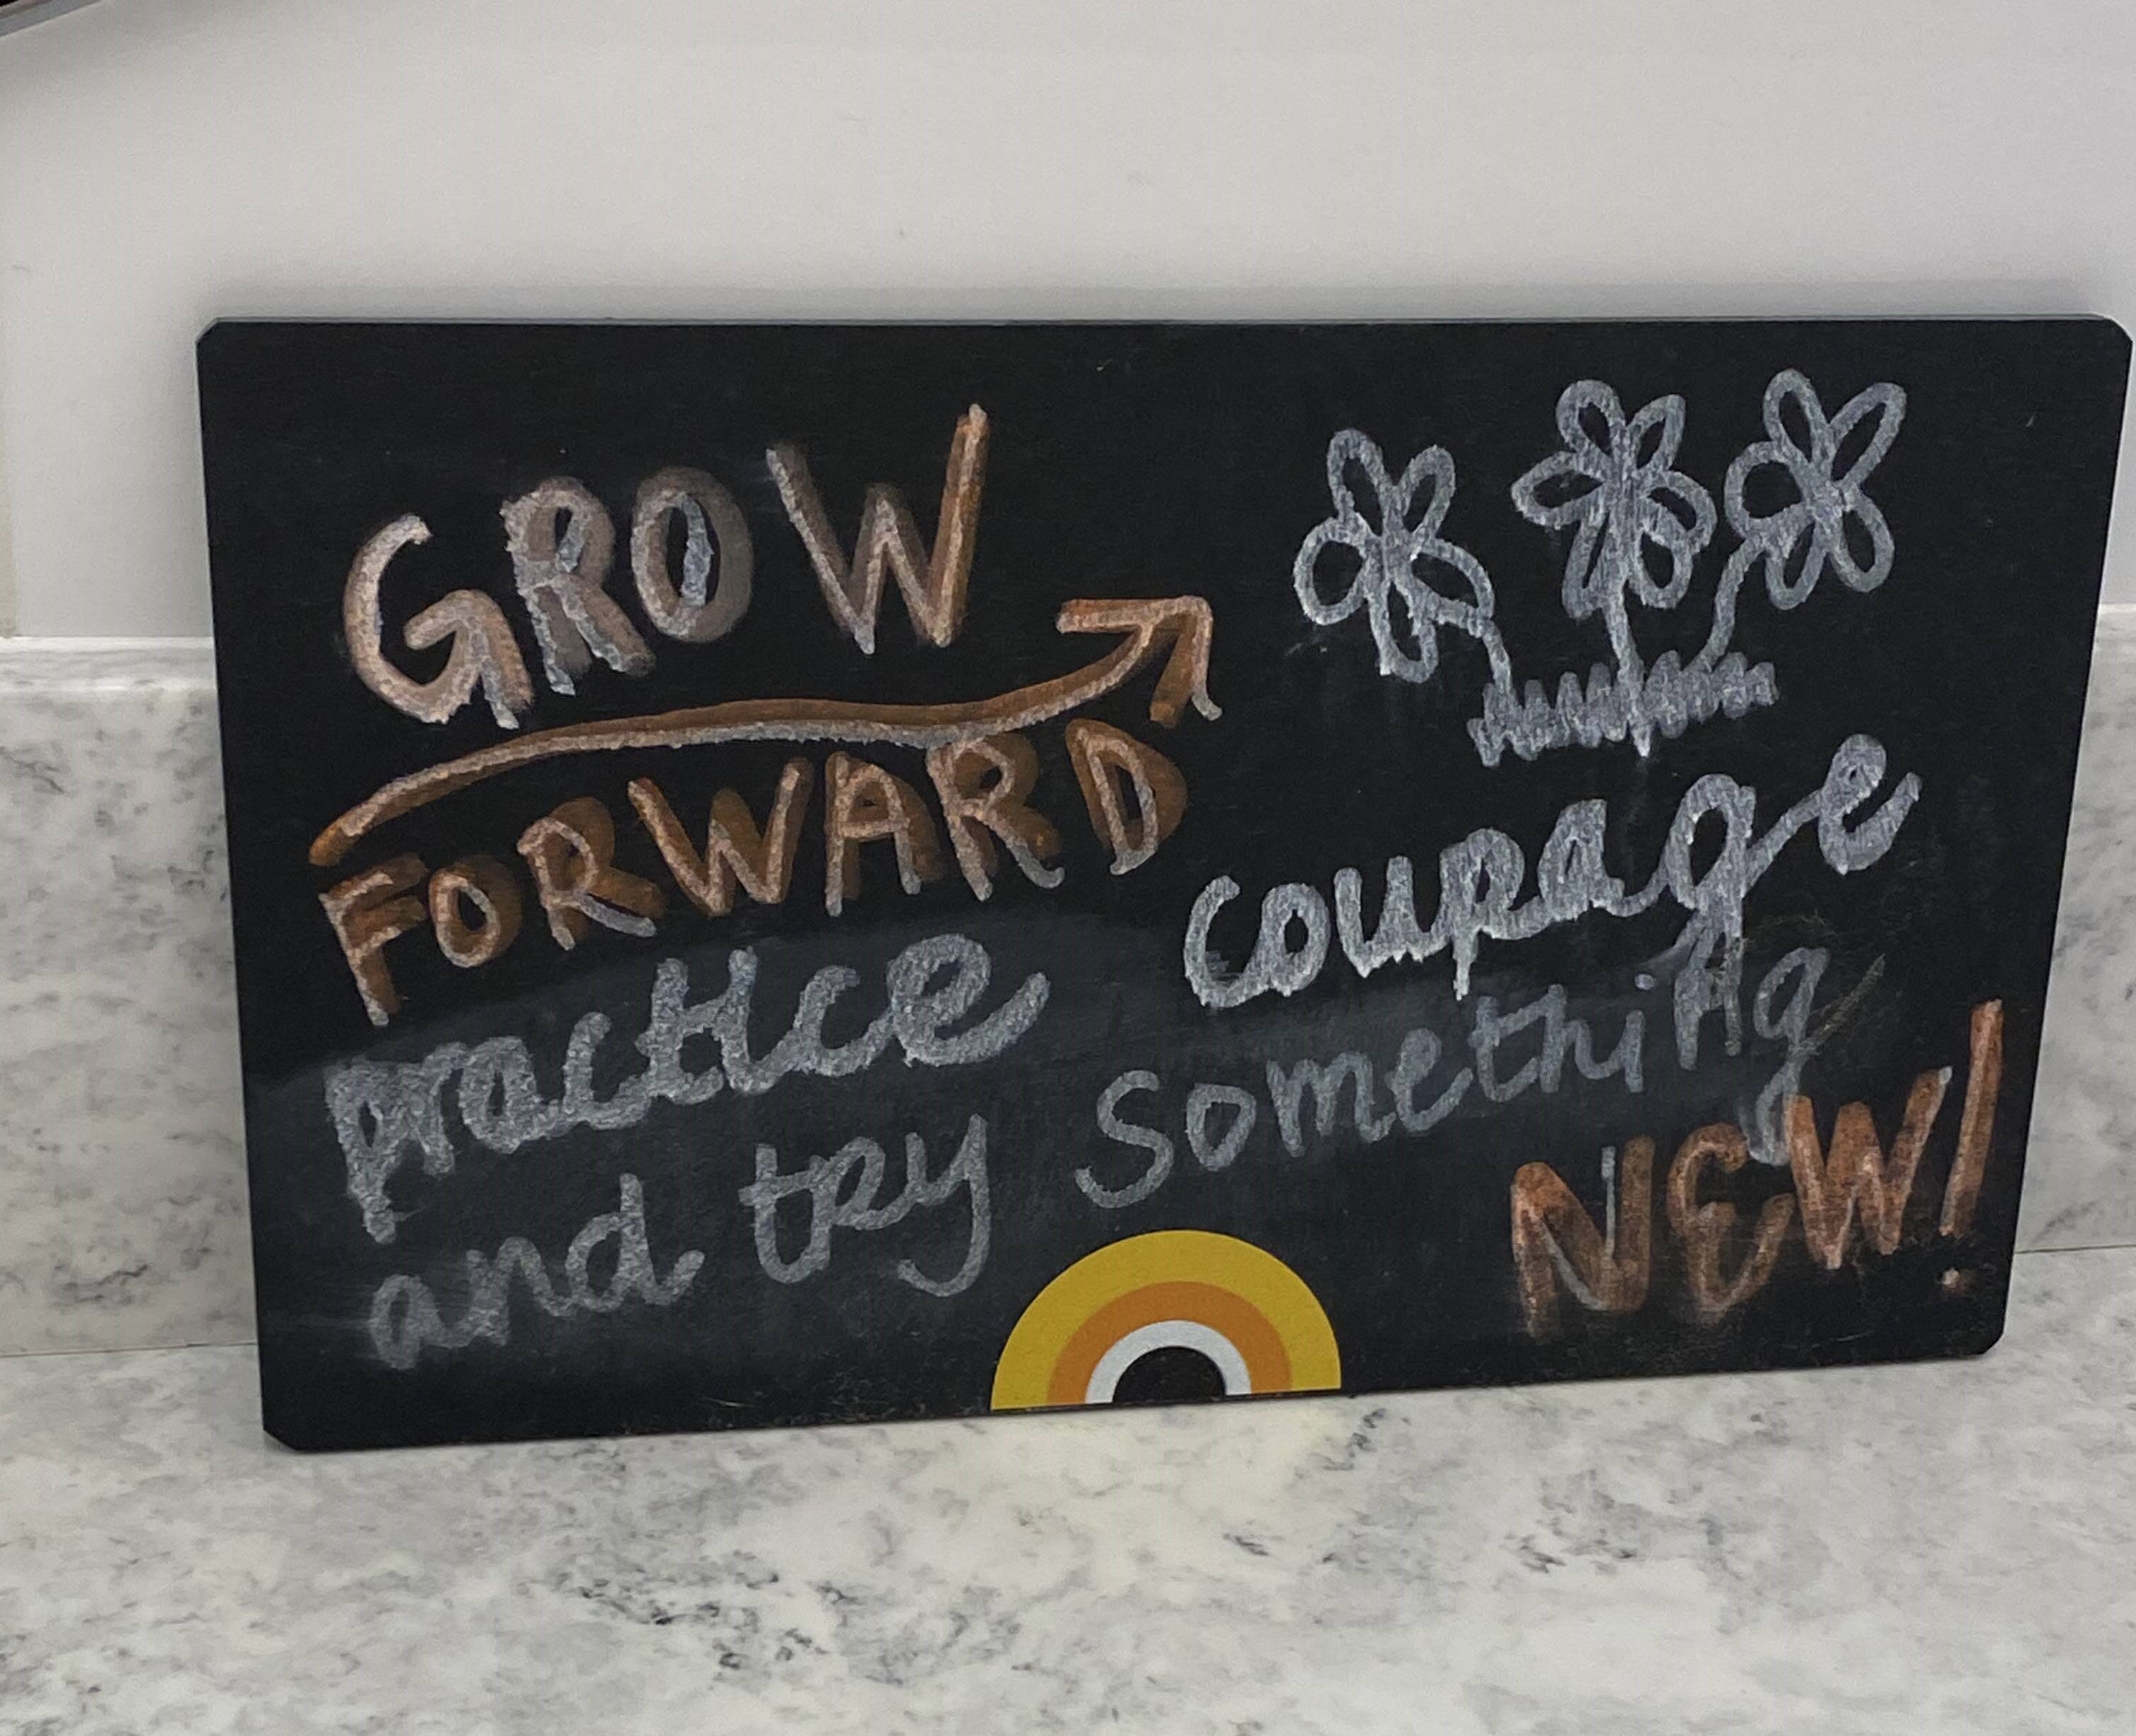 GROW
FORWARD
practice courage
and try something
NEW!